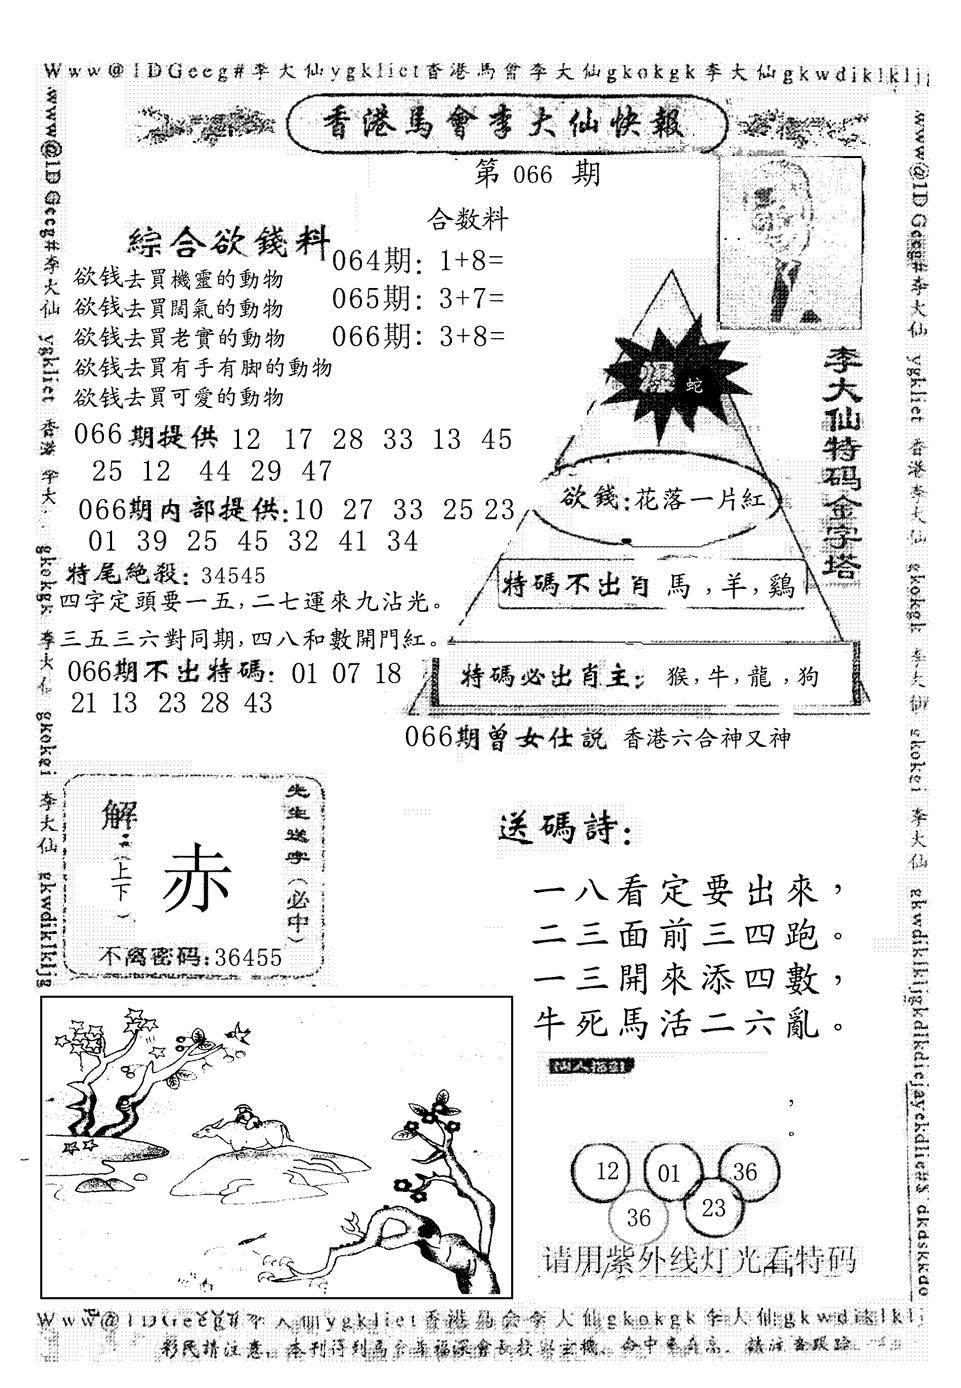 Www@1DGeeg#李大仙ygkliet香港馬會李大仙gkokgk李大仙gkwdiklkljg
香港馬會李大仙快報
第 066 期
合数料
綜合欲錢料
064期: 1+8=
065期: 3+7=
066期: 3+8=
欲钱去買機靈的動物
欲钱去買闊氣的動物
欲钱去買老實的動物
欲钱去買有手有脚的動物
欲钱去買可愛的動物
066期提供 12 17 28 33 13 45
25 12 44 29 47
066期内部提供:10 27 33 25 23
01 39 25 45 32 41 34
特尾絶殺: 34545
四字定頭要一五,二七運來九沾光。
三五三六對同期,四八和數開門紅。
066期不出特碼: 01 07 18
21 13 23 28 43
爆 蛇
欲錢:花落一片紅
特碼不出肖 馬,羊,鷄
特碼必出肖主: 猴,牛,龍,狗
李大仙特码金字塔
066期曾女仕説 香港六合神又神
解:(上下)
赤
先生送字(必中)
不离密码:36455
送碼詩:
一八看定要出來,
二三面前三四跑。
一三開來添四數,
牛死馬活二六亂。
,
。
12 01 36
36 23
请用紫外线灯光看特码
www@1DGeeg#李大仙 ygkliet 香港 李大 gkokgk 李大仙 gkokei 李大仙 gkwdiklkljg
www@1DGeeg#李大仙 ygkliet 香港李大仙 gkokgk 李大仙 gkokei 李大仙 gkwdiklkljgkdlkdiejayekdlie#$ dkdskkdo